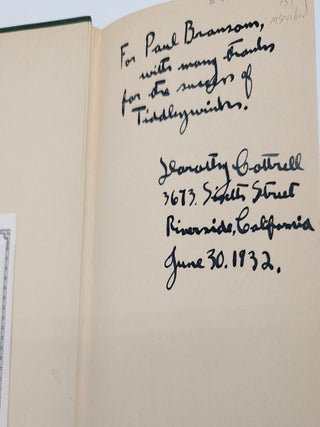 For Paul Bransom,
with many thanks
for the success of
Tiddleywinks.
Dorothy Cottrell
3673. Sixth Street
Riverside, California
June 30. 1932.